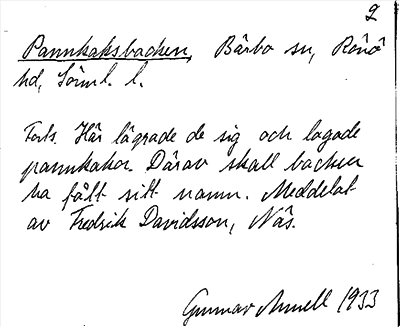 2
Pannkaksbacken, Bärbo sn, Rönö
hd, Sörml. l.
Forts. Här lägrade de sig och lagade
pannkakor. Därav skall backen
ha fått sitt namn. Meddelat
av Fredrik Davidsson, Näs.
Gunnar Amnell 1933